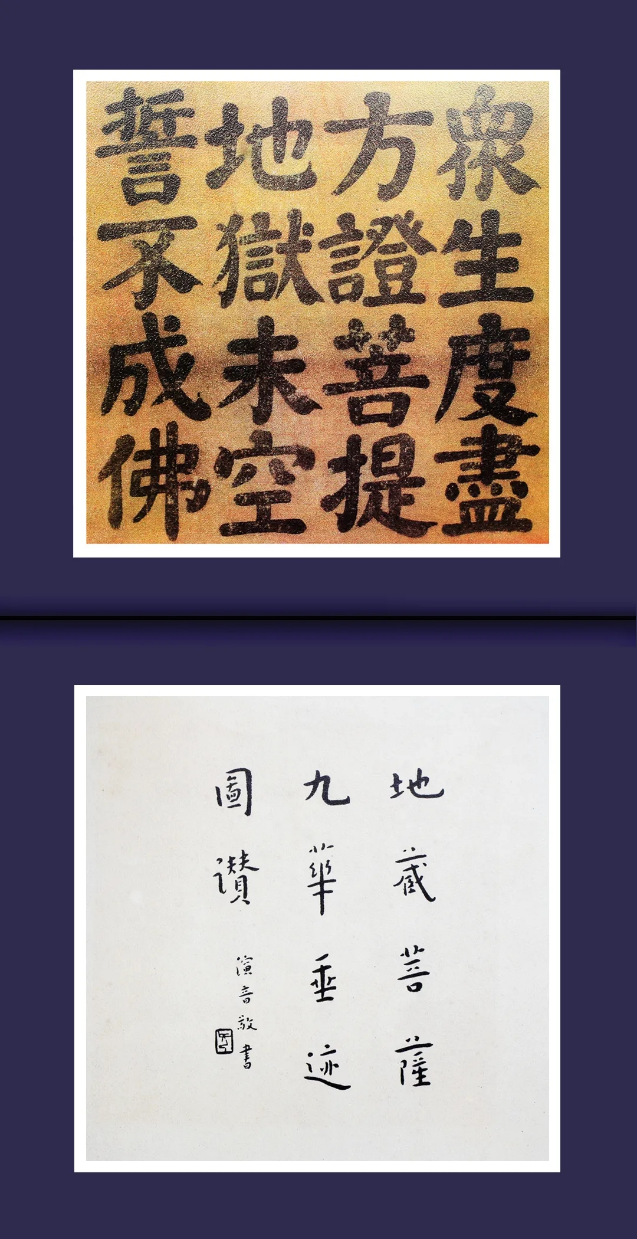 眾生度盡
方證菩提
地獄未空
誓不成佛
地藏菩薩
九華垂迹
圖讚
演音敬書